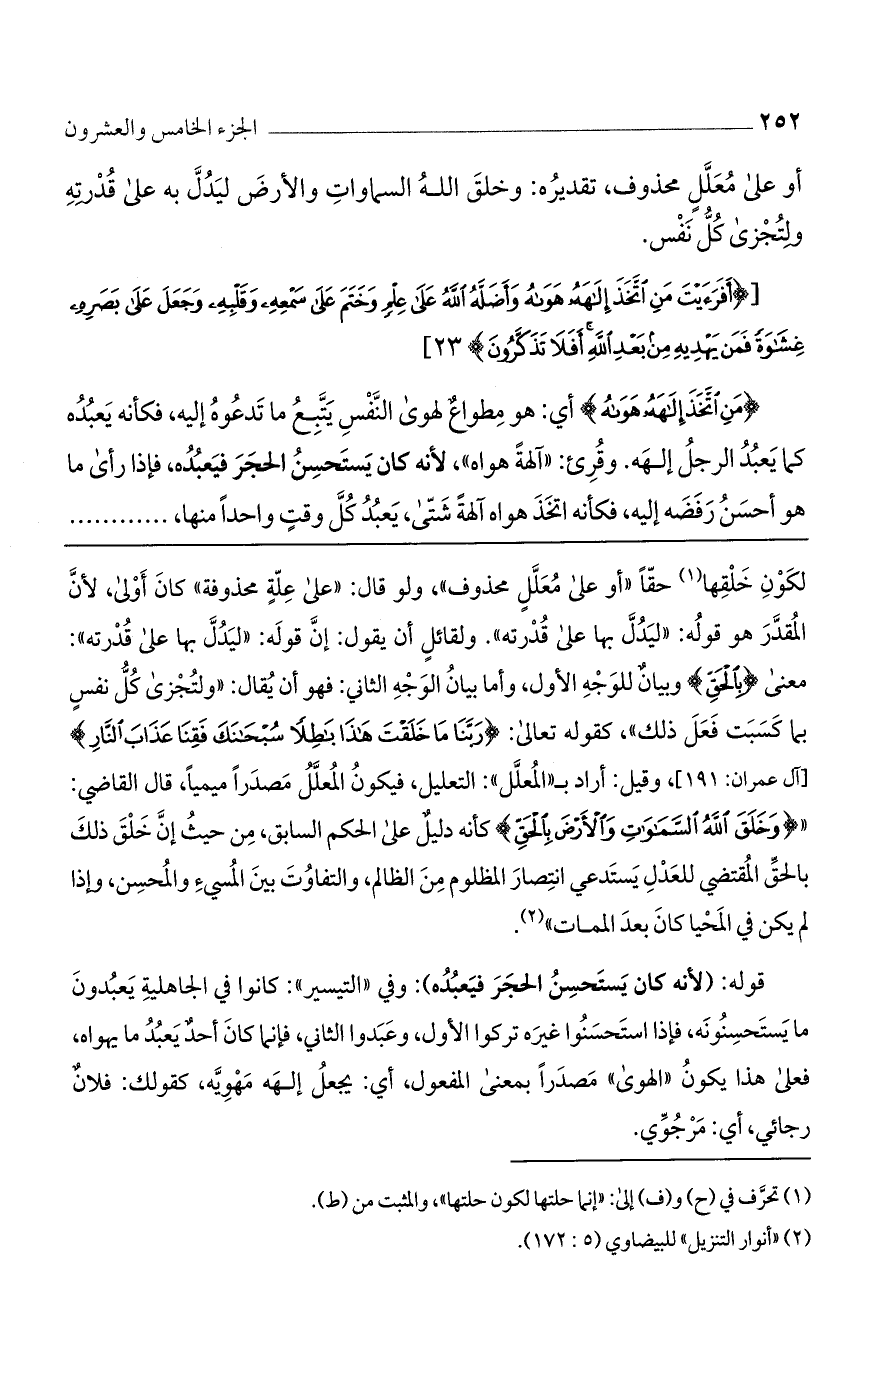 ٢٥٢ الجزء الخامس والعشرون
أو علىٰ مُعَلَّلٍ محذوف، تقديرُه: وخلقَ اللـهُ السماواتِ والأرضَ ليَدُلَّ به علىٰ قُدْرتِهِ
ولِتُجْزىٰ كُلُّ نَفْس.
[﴿أَفَرَءَيْتَ مَنِ ٱتَّخَذَ إِلَٰهَهُۥ هَوَىٰهُ وَأَضَلَّهُ ٱللَّهُ عَلَىٰ عِلْمٍ وَخَتَمَ عَلَىٰ سَمْعِهِۦ وَقَلْبِهِۦ وَجَعَلَ عَلَىٰ بَصَرِهِۦ
غِشَٰوَةً فَمَن يَهْدِيهِ مِنۢ بَعْدِ ٱللَّهِ ۚ أَفَلَا تَذَكَّرُونَ﴾ ٢٣]
﴿مَنِ ٱتَّخَذَ إِلَٰهَهُۥ هَوَىٰهُ﴾ أي: هو مِطواعٌ لهوىٰ النَّفْسِ يَتَّبِعُ ما تَدعُوهُ إليه، فكأنه يَعبُدُه
كما يَعبُدُ الرجلُ إلـهَه. وقُرِئ: «آلهةً هواه»، لأنه كان يَستَحسِنُ الحجَرَ فيَعبُدُه، فإذا رأىٰ ما
هو أحسَنُ رَفَضَه إليه، فكأنه اتخَذَ هواه آلهةً شَتّىٰ، يَعبُدُ كُلَّ وقتٍ واحداً منها، ............
لكَوْنِ خَلْقِها(١) حقّاً «أو علىٰ مُعَلَّلٍ محذوف»، ولو قال: «علىٰ علّةٍ محذوفة» كانَ أَوْلىٰ، لأنَّ
المُقدَّرَ هو قولُه: «ليَدُلَّ بها علىٰ قُدْرته». ولقائلٍ أن يقول: إنَّ قولَه: «ليَدُلَّ بها علىٰ قُدْرته»:
معنىٰ ﴿بِٱلْحَقِّ﴾ وبيانٌ للوَجْهِ الأول، وأما بيانُ الوَجْهِ الثاني: فهو أن يُقال: «ولتُجْزىٰ كُلُّ نفسٍ
بما كَسَبَت فَعَلَ ذلك»، كقوله تعالىٰ: ﴿رَبَّنَا مَا خَلَقْتَ هَٰذَا بَٰطِلًا سُبْحَٰنَكَ فَقِنَا عَذَابَ ٱلنَّارِ﴾
[آل عمران: ١٩١]، وقيل: أراد بـ«المُعلَّل»: التعليل، فيكونُ المُعلَّلُ مَصدَراً ميمياً، قال القاضي:
«﴿وَخَلَقَ ٱللَّهُ ٱلسَّمَٰوَٰتِ وَٱلْأَرْضَ بِٱلْحَقِّ﴾ كأنه دليلٌ علىٰ الحكم السابق، مِن حيثُ إنَّ خَلْقَ ذلكَ
بالحقِّ المُقتضي للعَدْلِ يَستَدعي انتِصارَ المظلوم مِنَ الظالم، والتفاوُتَ بينَ المُسيءِ والمُحسِن، وإذا
لم يكن في المَحْيا كانَ بعدَ الممـات»(٢).
قوله: (لأنه كان يَستَحسِنُ الحجَرَ فيَعبُدُه): وفي «التيسير»: كانوا في الجاهليةِ يَعبُدُونَ
ما يَستَحسِنُونَه، فإذا استَحسَنُوا غيرَه تركوا الأول، وعَبَدوا الثاني، فإنما كانَ أحدٌ يَعبُدُ ما يهواه،
فعلىٰ هذا يكونُ «الهوىٰ» مَصدَراً بمعنىٰ المفعول، أي: يجعلُ إلـهَه مَهْوِيَّه، كقولك: فلانٌ
رجائي، أي: مَرْجُوِّي.
(١) تحرَّف في (ح) و(ف) إلىٰ: «إنما حلتها لكون حلتها»، والمثبت من (ط).
(٢) «أنوار التنزيل» للبيضاوي (٥ : ١٧٢).